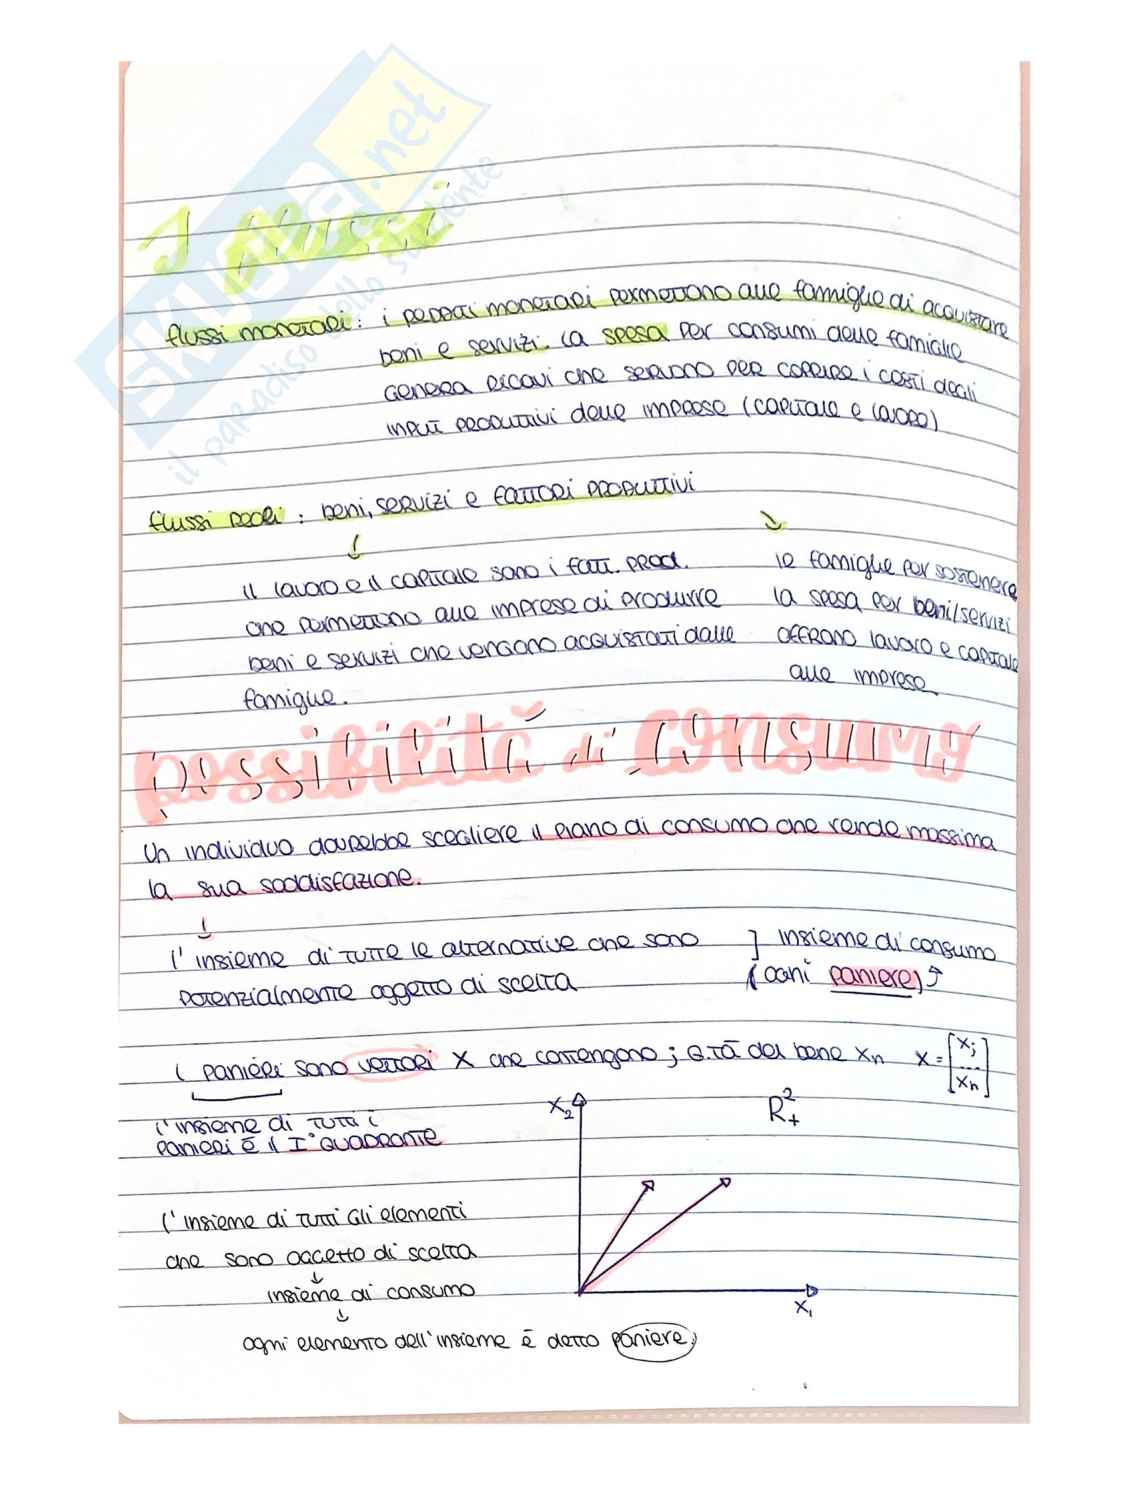 SKUOLA.net
il paradiso dello studente
I flussi
flussi monetari : i redditi monetari permettono alle famiglie di acquistare
beni e servizi. La spesa per consumi delle famiglie
genera ricavi che servono per coprire i costi degli
input produttivi delle imprese (capitale e lavoro)
flussi reali : beni, servizi e fattori produttivi
↓ ↘
il lavoro e il capitale sono i fatt. prod.
che permettono alle imprese di produrre
beni e servizi che vengono acquistati dalle
famiglie.
le famiglie per sostenere
la spesa per beni/servizi
offrono lavoro e capitale
alle imprese.
possibilità di consumo
Un individuo dovrebbe scegliere il piano di consumo che rende massima
la sua soddisfazione.
↓
l'insieme di tutte le alternative che sono
potenzialmente oggetto di scelta
] insieme di consumo
(ogni paniere)
( panieri sono vettori X che contengono j q.tà del bene xn X = [xj ... xn]
l'insieme di tutti i
panieri è il I° quadrante
x2
R²+
x1
l'insieme di tutti gli elementi
che sono oggetto di scelta
↓
insieme di consumo
↓
ogni elemento dell'insieme è detto paniere.